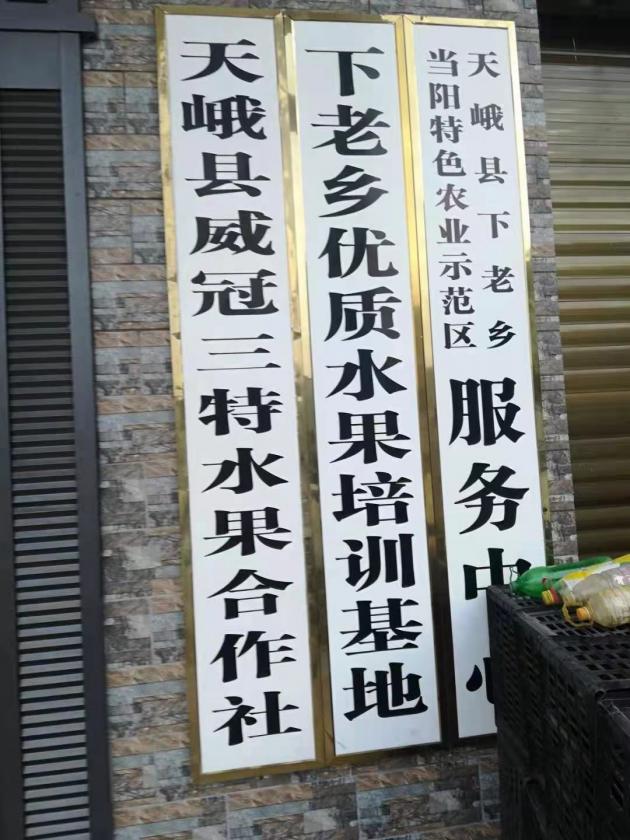 天峨县威冠三特水果合作社
下老乡优质水果培训基地
天峨县下老乡
当阳特色农业示范区
服务中心